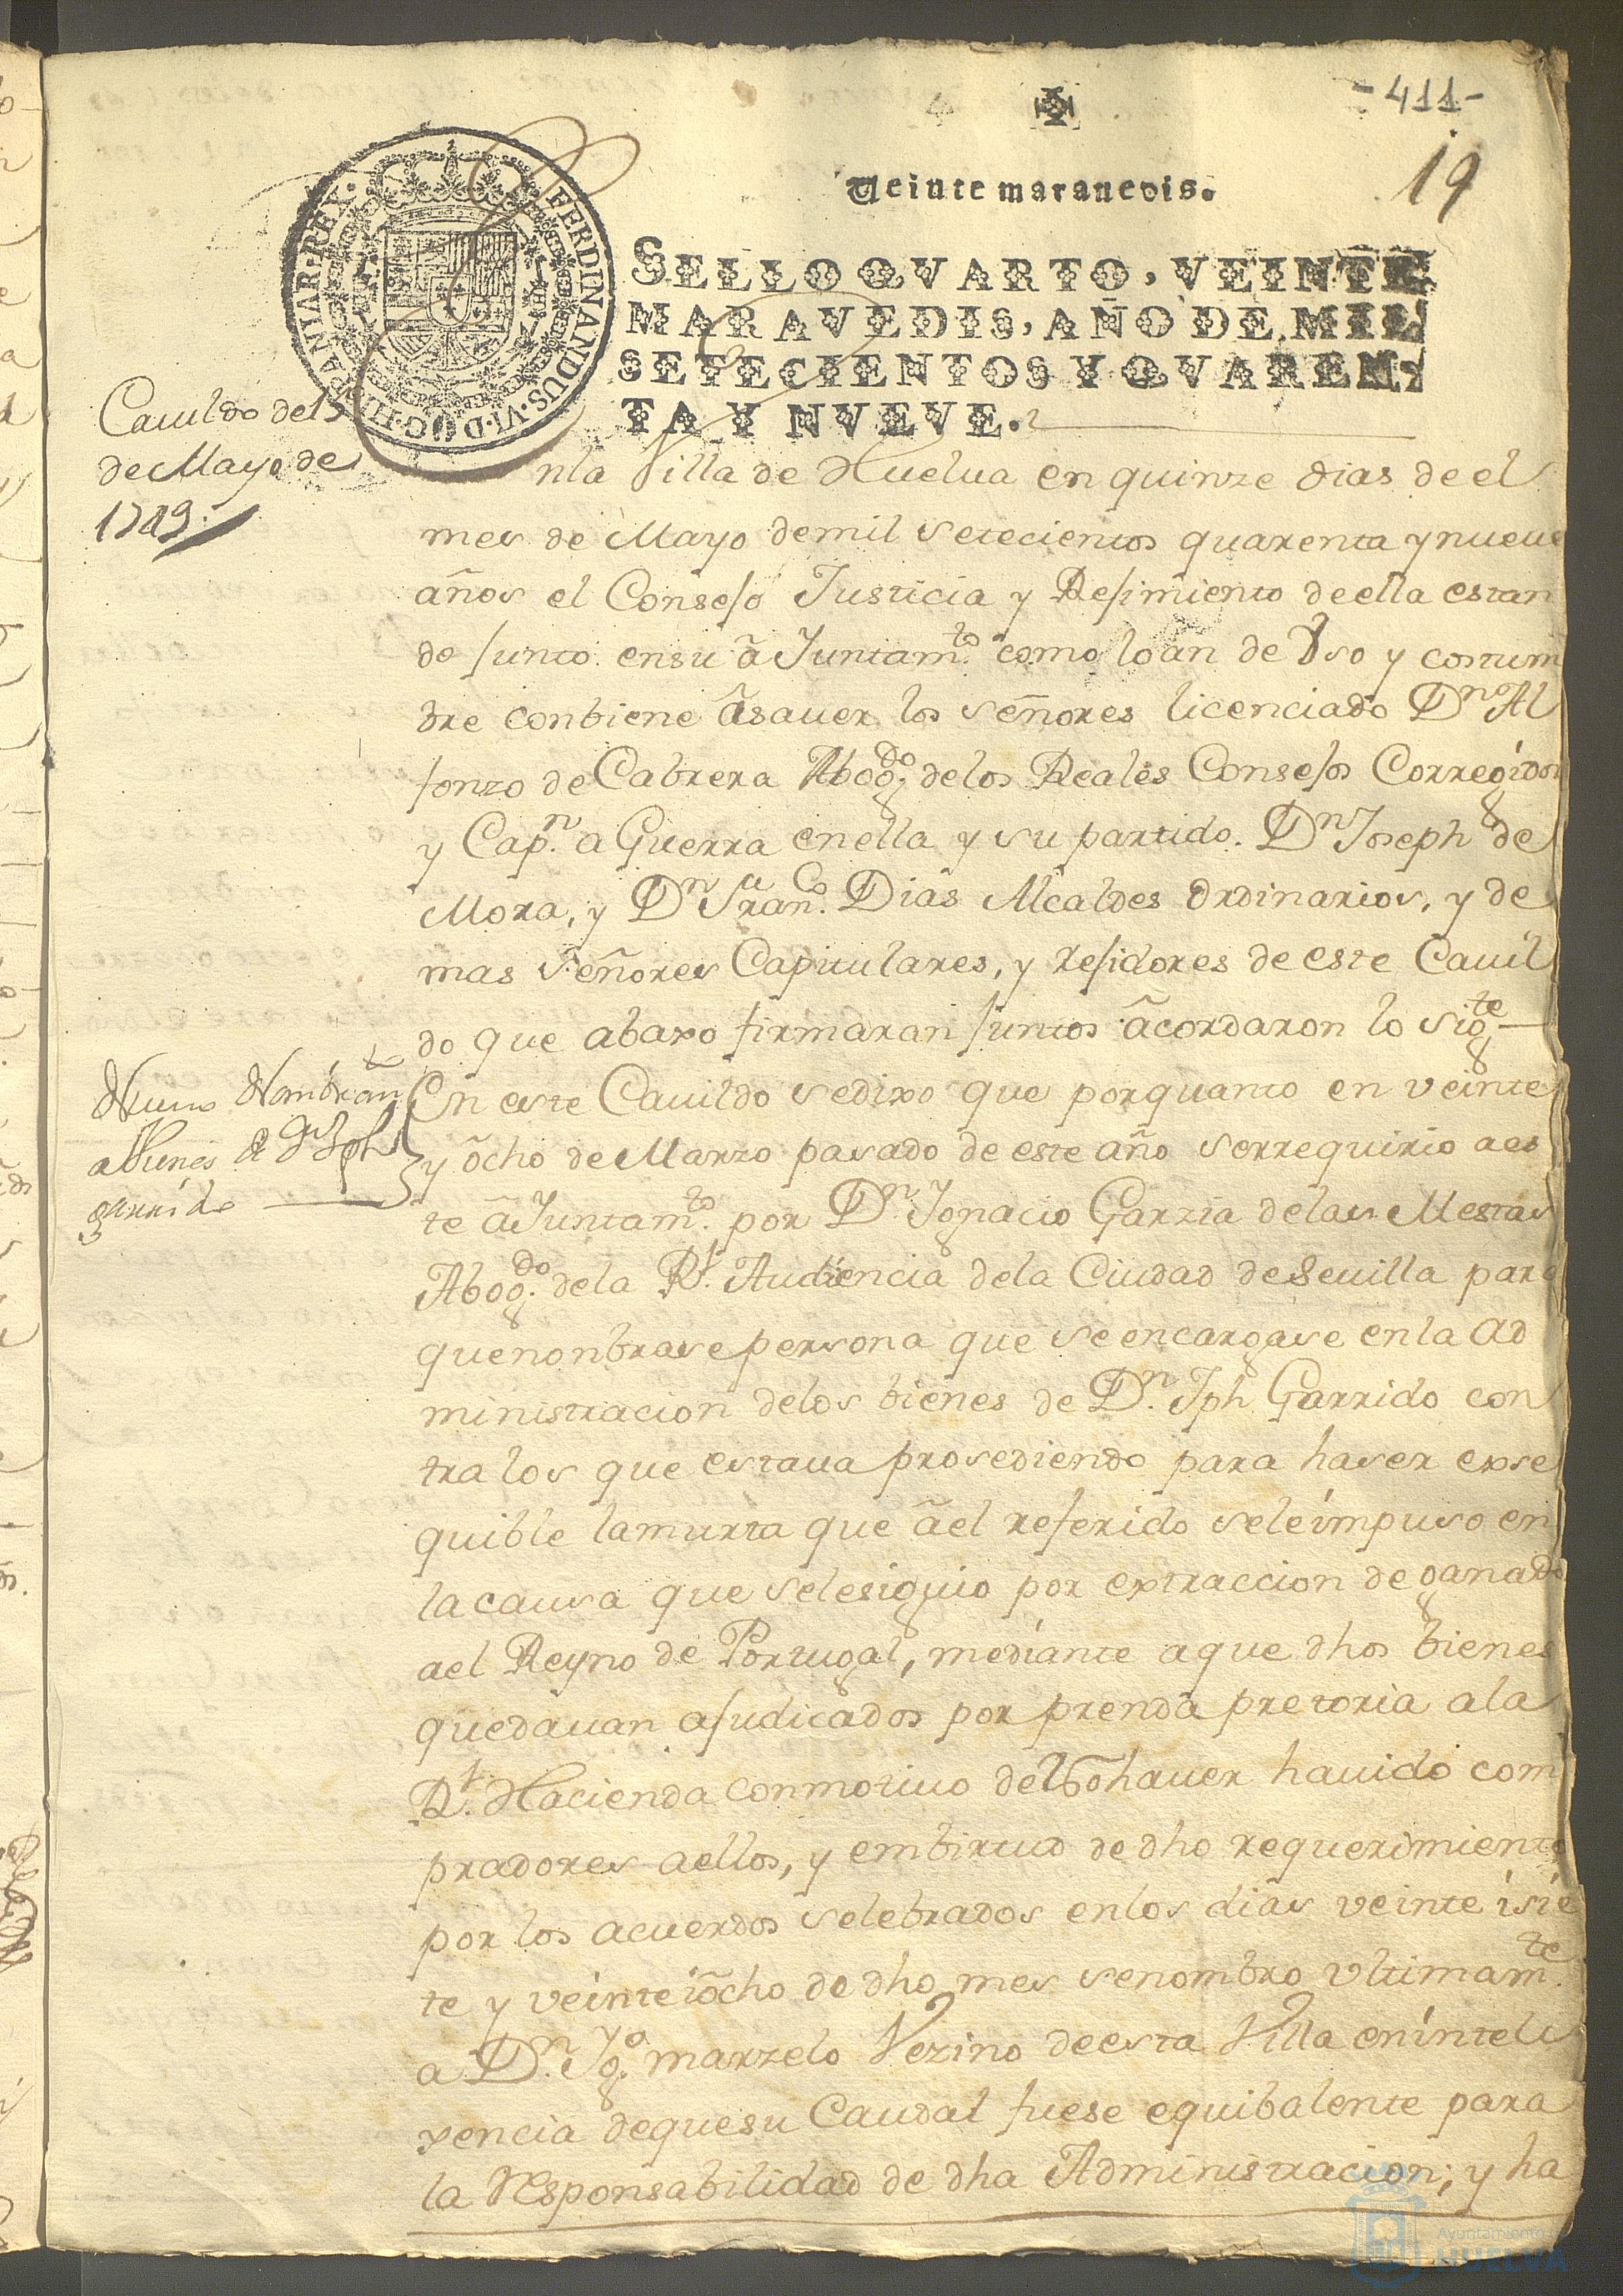 -411-
19
Veinte maravedis.
SELLO QVARTO, VEINTE
MARAVEDIS, AÑO DE MIL
SETECIENTOS Y QVAREN-
TA Y NVEVE.
FERDINANDUS·VI·D·G·HISPANIAR·REX·
Cauildo de 15
de Mayo de
1749.
nla Villa de Huelua en quinze dias de el
mes de Mayo de mil setecientos quarenta y nueue
años el Consejo Justicia y Rejimiento de ella estan
do junto en su ã Juntam.to como lo an de Vso y costum
bre conbiene ã sauer los señores licenciado Dn Al
fonzo de Cabrera Abog.do de los Reales Consejos Corregidor
y Cap.n a Guerra en ella y su partido. Dn Joseph de
Mora, y Dn Fran.co Dias Alcaldes Ordinarios, y de
mas Señores Capitulares, y Rejidores de este Cauil
do que abaxo firmaran juntos ãcordaron lo sig.te
Nueuo Nombram.to
a Vienes de Dn Jph
garrido
En este Cauildo se dixo que por quanto en veinte
y õcho de Marzo pasado de este año se rrequirio a es
te ãJuntam.to por Dn. Ignacio Garzia de las Mestas
Abog.do de la Rl. Audiencia de la Ciudad de Seuilla para
que nonbrase persona que se encargase en la ad
ministracion de los bienes de Dn. Jph Garrido con
tra los que estaua prosediendo para haser exse
quible la murta que ãel referido se le impuso en
la causa que se le siguio por extraccion de ganado
ael Reyno de Portugal, mediante a que dhos bienes
quedauan ajudicados por prenda pretoria a la
Rl. Hacienda con motiuo de no hauer hauido com
pradores a ellos, y embirtud de dho requerimiento
por los acuerdos selebrados en los dias veinte i sie
te y veinte i õcho de dho mes se nombro vltimam.te
a Dn. Ig.o marzelo Vezino de esta Villa en inteli
xencia de que su Caudal fuese equibalente para
la responsabilidad de dha Administracion; y ha
Ayuntamiento de
HUELVA